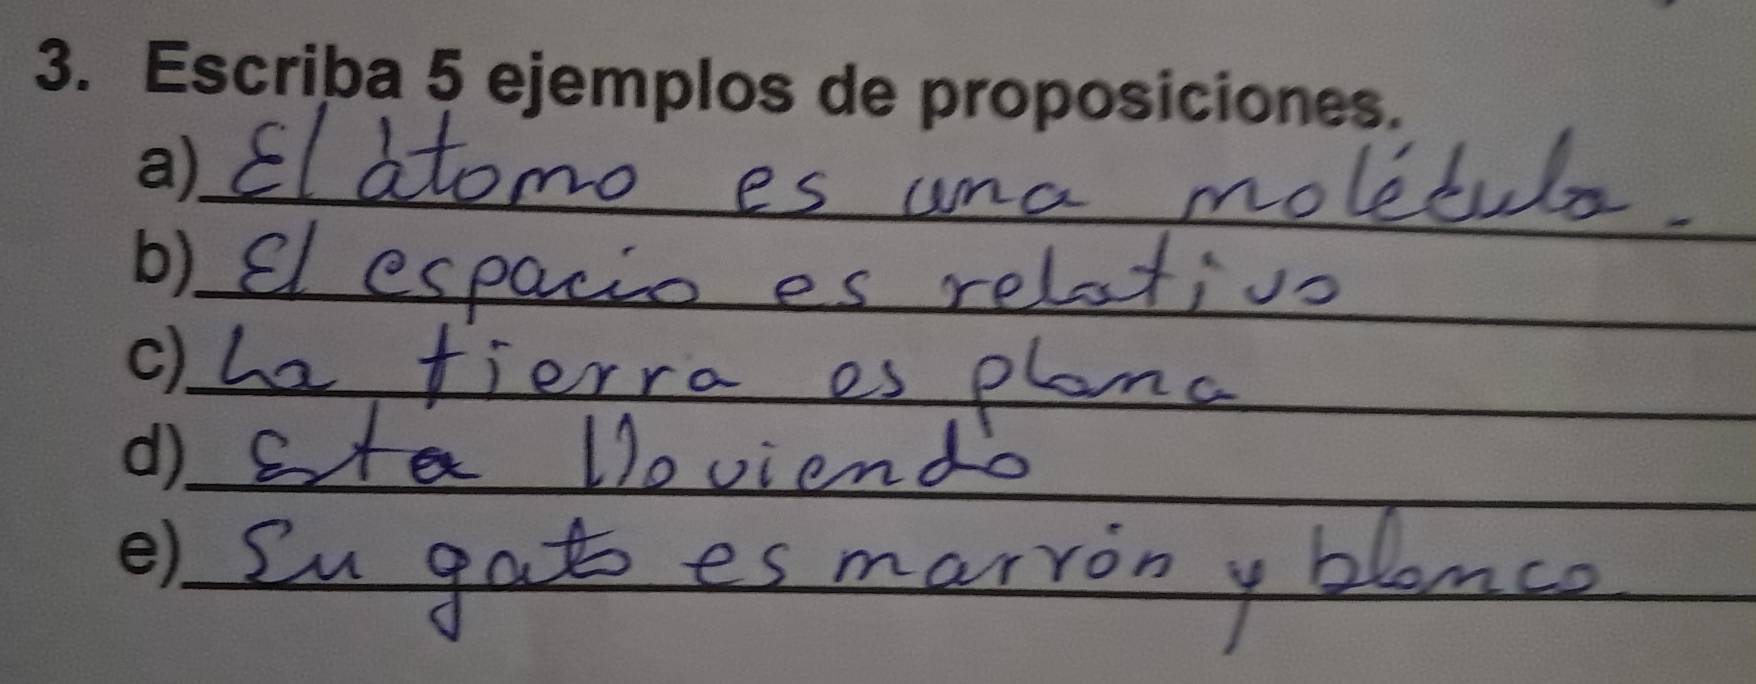 3. Escriba 5 ejemplos de proposiciones.
a) El átomo es una molécula.
b) El espacio es relativo
c) La tierra es plana
d) Esta lloviendo
e) Su gato es marrón y blanco